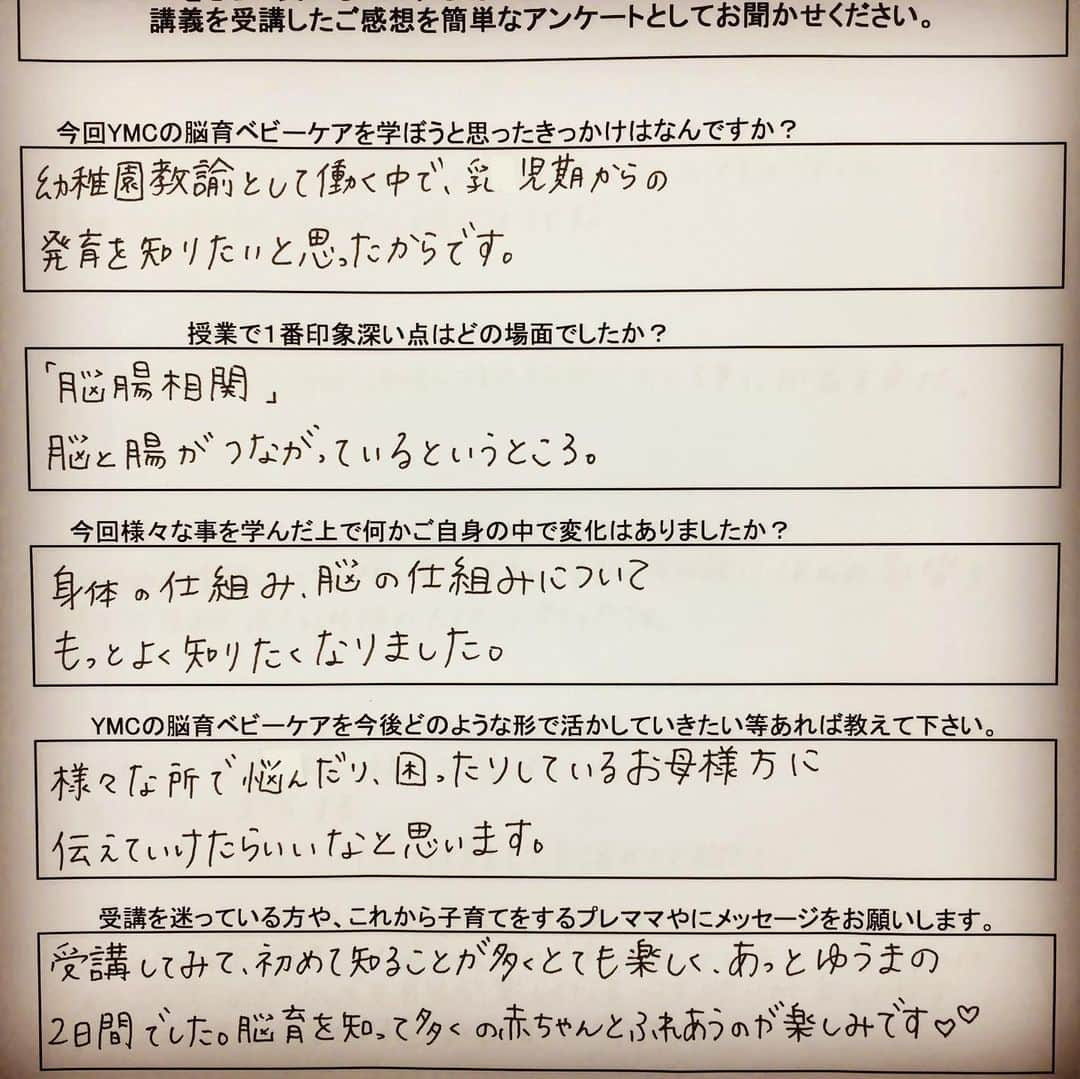 講義を受講したご感想を簡単なアンケートとしてお聞かせください。
今回YMCの脳育ベビーケアを学ぼうと思ったきっかけはなんですか？
幼稚園教諭として働く中で、乳児期からの
発育を知りたいと思ったからです。
授業で1番印象深い点はどの場面でしたか？
「脳腸相関」
脳と腸がつながっているというところ。
今回様々な事を学んだ上で何かご自身の中で変化はありましたか？
身体の仕組み、脳の仕組みについて
もっとよく知りたくなりました。
YMCの脳育ベビーケアを今後どのような形で活かしていきたい等あれば教えて下さい。
様々な所で悩んだり、困ったりしているお母様方に
伝えていけたらいいなと思います。
受講を迷っている方や、これから子育てをするプレママやにメッセージをお願いします。
受講してみて、初めて知ることが多くとても楽しく、あっとゆうまの
2日間でした。脳育を知って多くの赤ちゃんとふれあうのが楽しみです♡♡